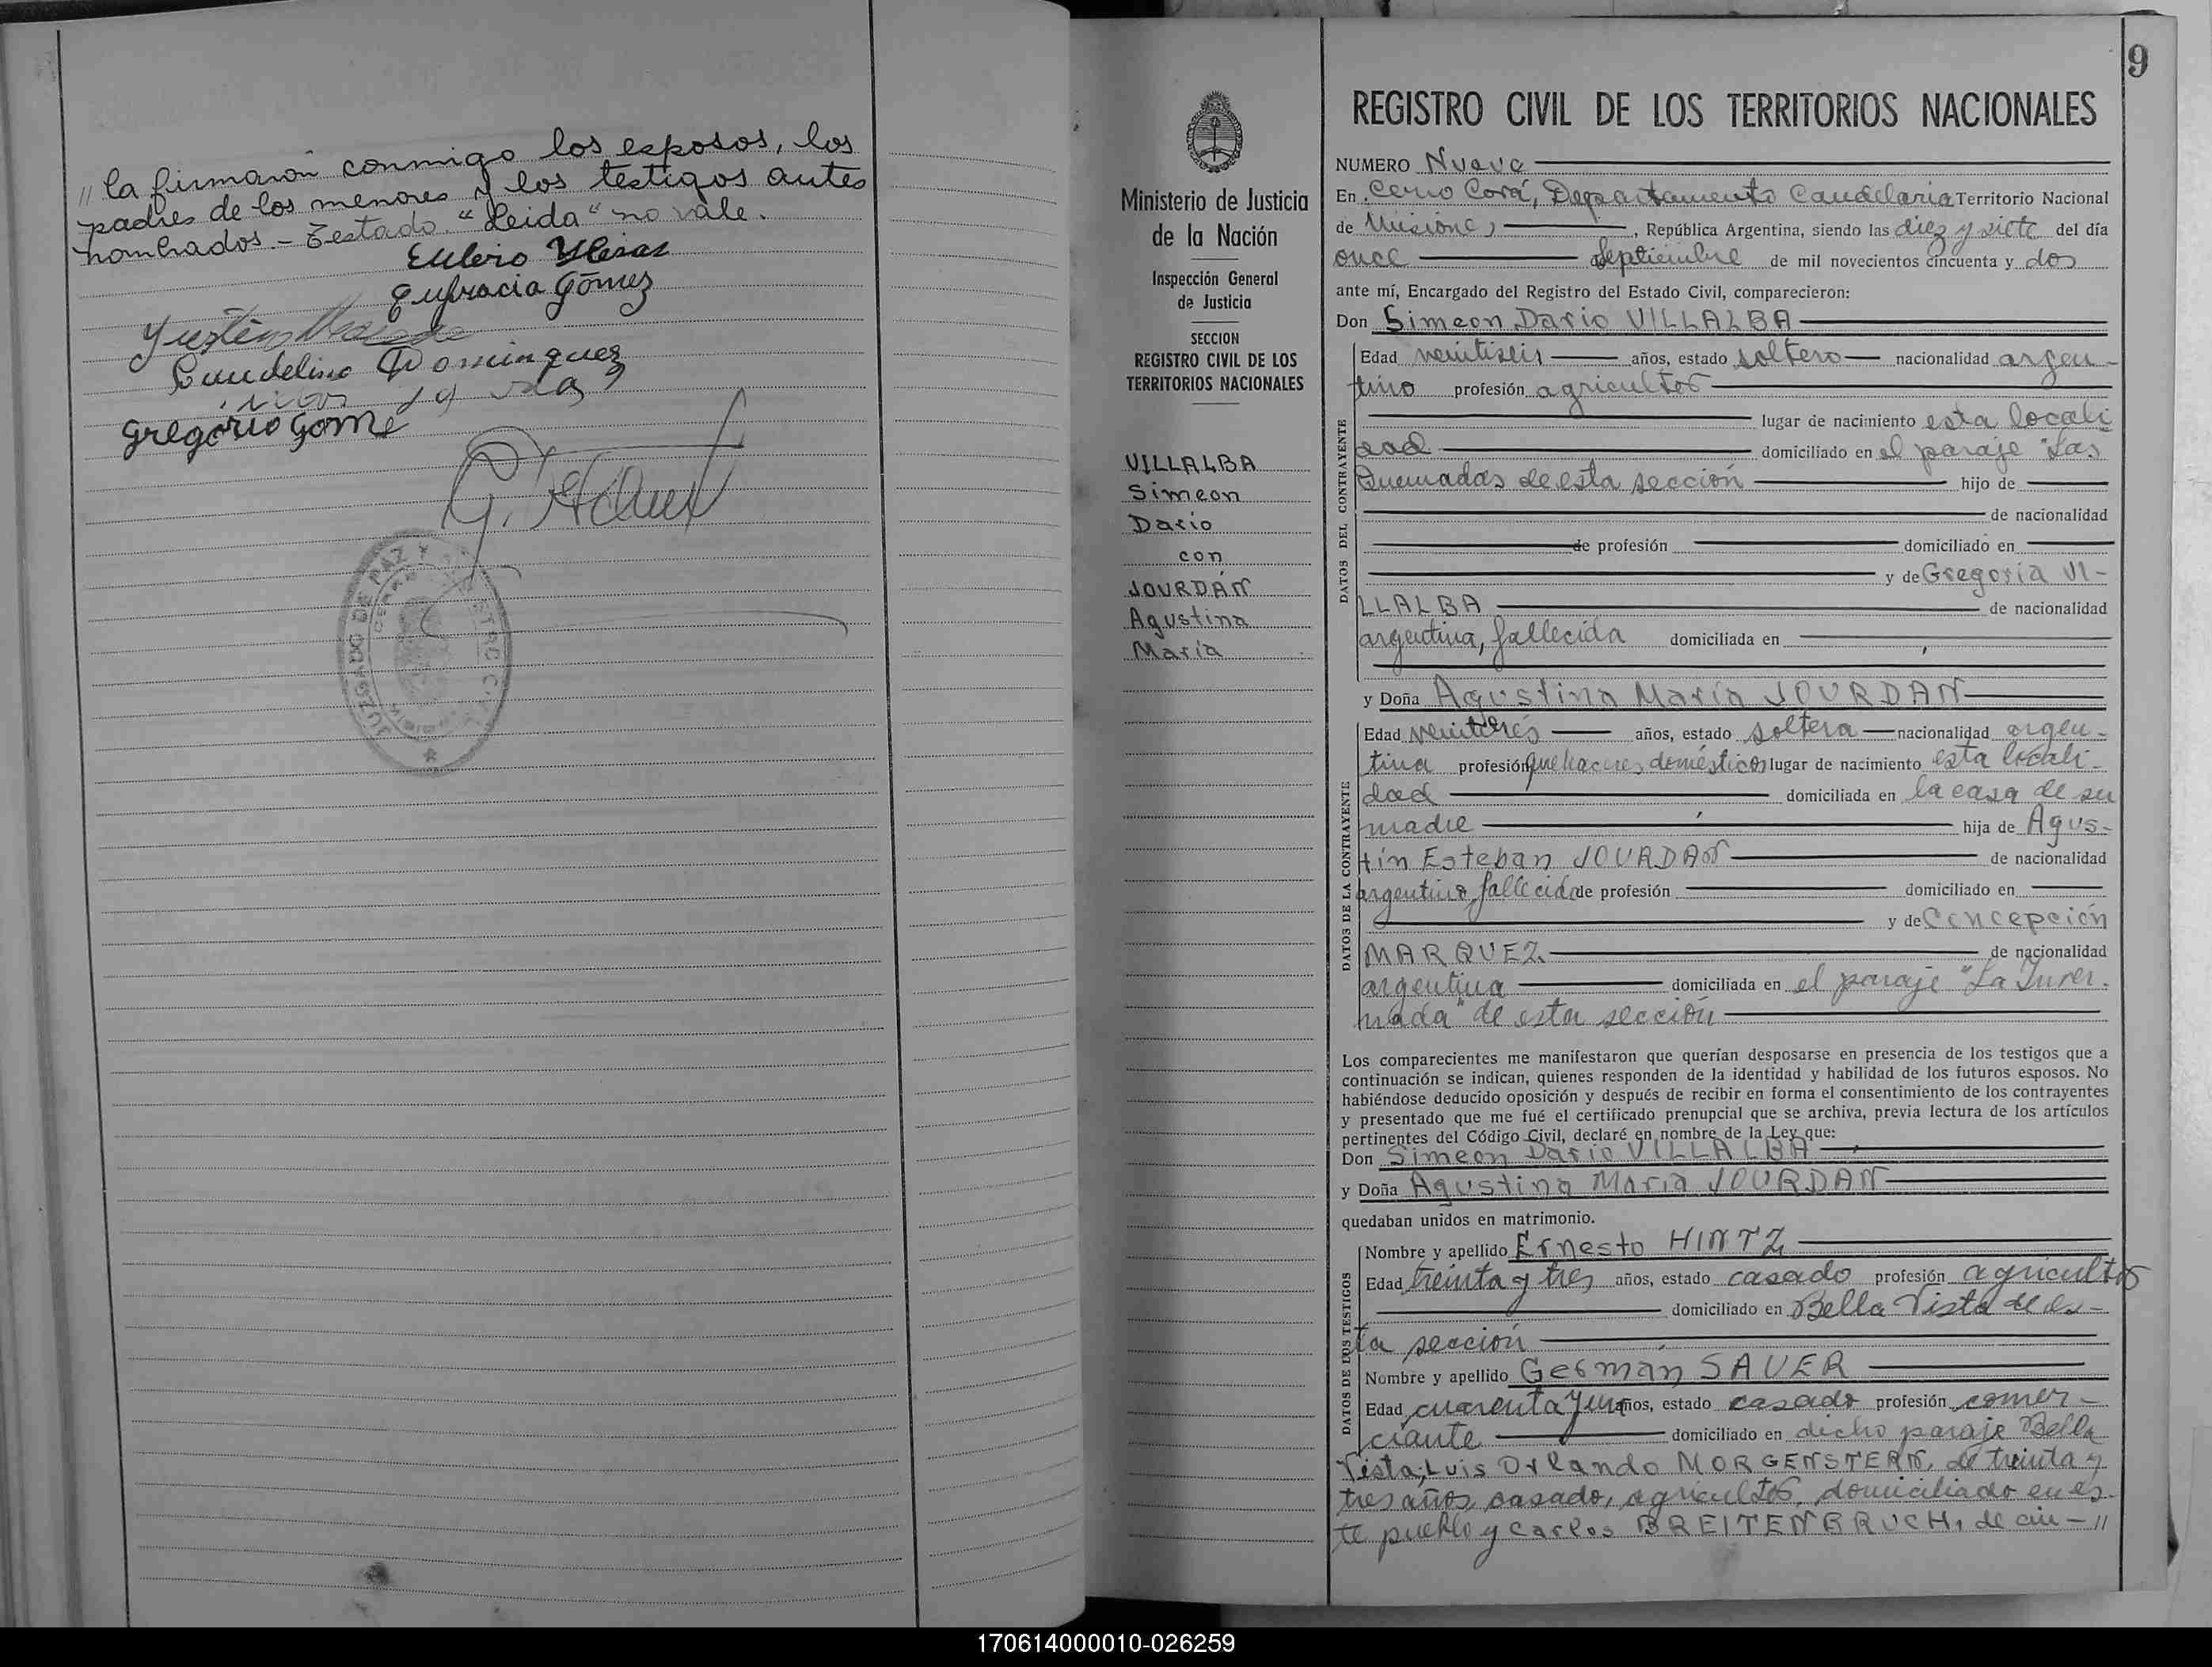 " la firmaron conmigo los esposos, los
padres de los menores y los testigos antes
nombrados - Testado "Leida" no vale.
Eulerio
Eufracia Gómez
Candelino Dominguez
Gregorio Gome
JUZGADO DE PAZ Y
9
REGISTRO CIVIL DE LOS TERRITORIOS NACIONALES
Ministerio de Justicia
de la Nación
Inspección General
de Justicia
SECCION
REGISTRO CIVIL DE LOS
TERRITORIOS NACIONALES
VILLALBA
Simeon
Dario
con
JOURDÁN
Agustina
María
NUMERO Nueve
En Cerro Corá, Departamento Candelaria Territorio Nacional
de Misiones, República Argentina, siendo las diez y siete del día
once Septiembre de mil novecientos cincuenta y dos
ante mí, Encargado del Registro del Estado Civil, comparecieron:
Don Simeon Dario VILLALBA
DATOS DEL CONTRAYENTE
Edad veintiseis años, estado soltero nacionalidad argen-
tino profesión agricultor
lugar de nacimiento esta locali
dad domiciliado en el paraje "Las
Quemadas de esta sección hijo de
de nacionalidad
de profesión domiciliado en
y de Gregoria VI-
LLALBA de nacionalidad
argentina, fallecida domiciliada en
y Doña Agustina María JOURDAN
DATOS DE LA CONTRAYENTE
Edad veintitrés años, estado soltera nacionalidad argen-
tina profesión quehaceres domésticos lugar de nacimiento esta locali-
dad domiciliada en la casa de su
madre hija de Agus-
tín Esteban JOURDAN de nacionalidad
argentino, fallecido de profesión domiciliado en
y de Concepción
MARQUEZ de nacionalidad
argentina domiciliada en el paraje "La Inver-
nada" de esta sección
Los comparecientes me manifestaron que querían desposarse en presencia de los testigos que a
continuación se indican, quienes responden de la identidad y habilidad de los futuros esposos. No
habiéndose deducido oposición y después de recibir en forma el consentimiento de los contrayentes
y presentado que me fué el certificado prenupcial que se archiva, previa lectura de los artículos
pertinentes del Código Civil, declaré en nombre de la Ley que:
Don Simeon Dario VILLALBA
y Doña Agustina María JOURDAN
quedaban unidos en matrimonio.
DATOS DE LOS TESTIGOS
Nombre y apellido Ernesto HINTZ
Edad treinta y tres años, estado casado profesión agricultor
domiciliado en Bella Vista de es-
ta sección
Nombre y apellido Germán SAUER
Edad cuarenta y un años, estado casado profesión comer-
ciante domiciliado en dicho paraje Bella
Vista; Luis Orlando MORGENSTERN, de treinta y
tres años, casado, agricultor, domiciliado en es-
te pueblo y Carlos BREITENBRUCH, de cin-"
170614000010-026259